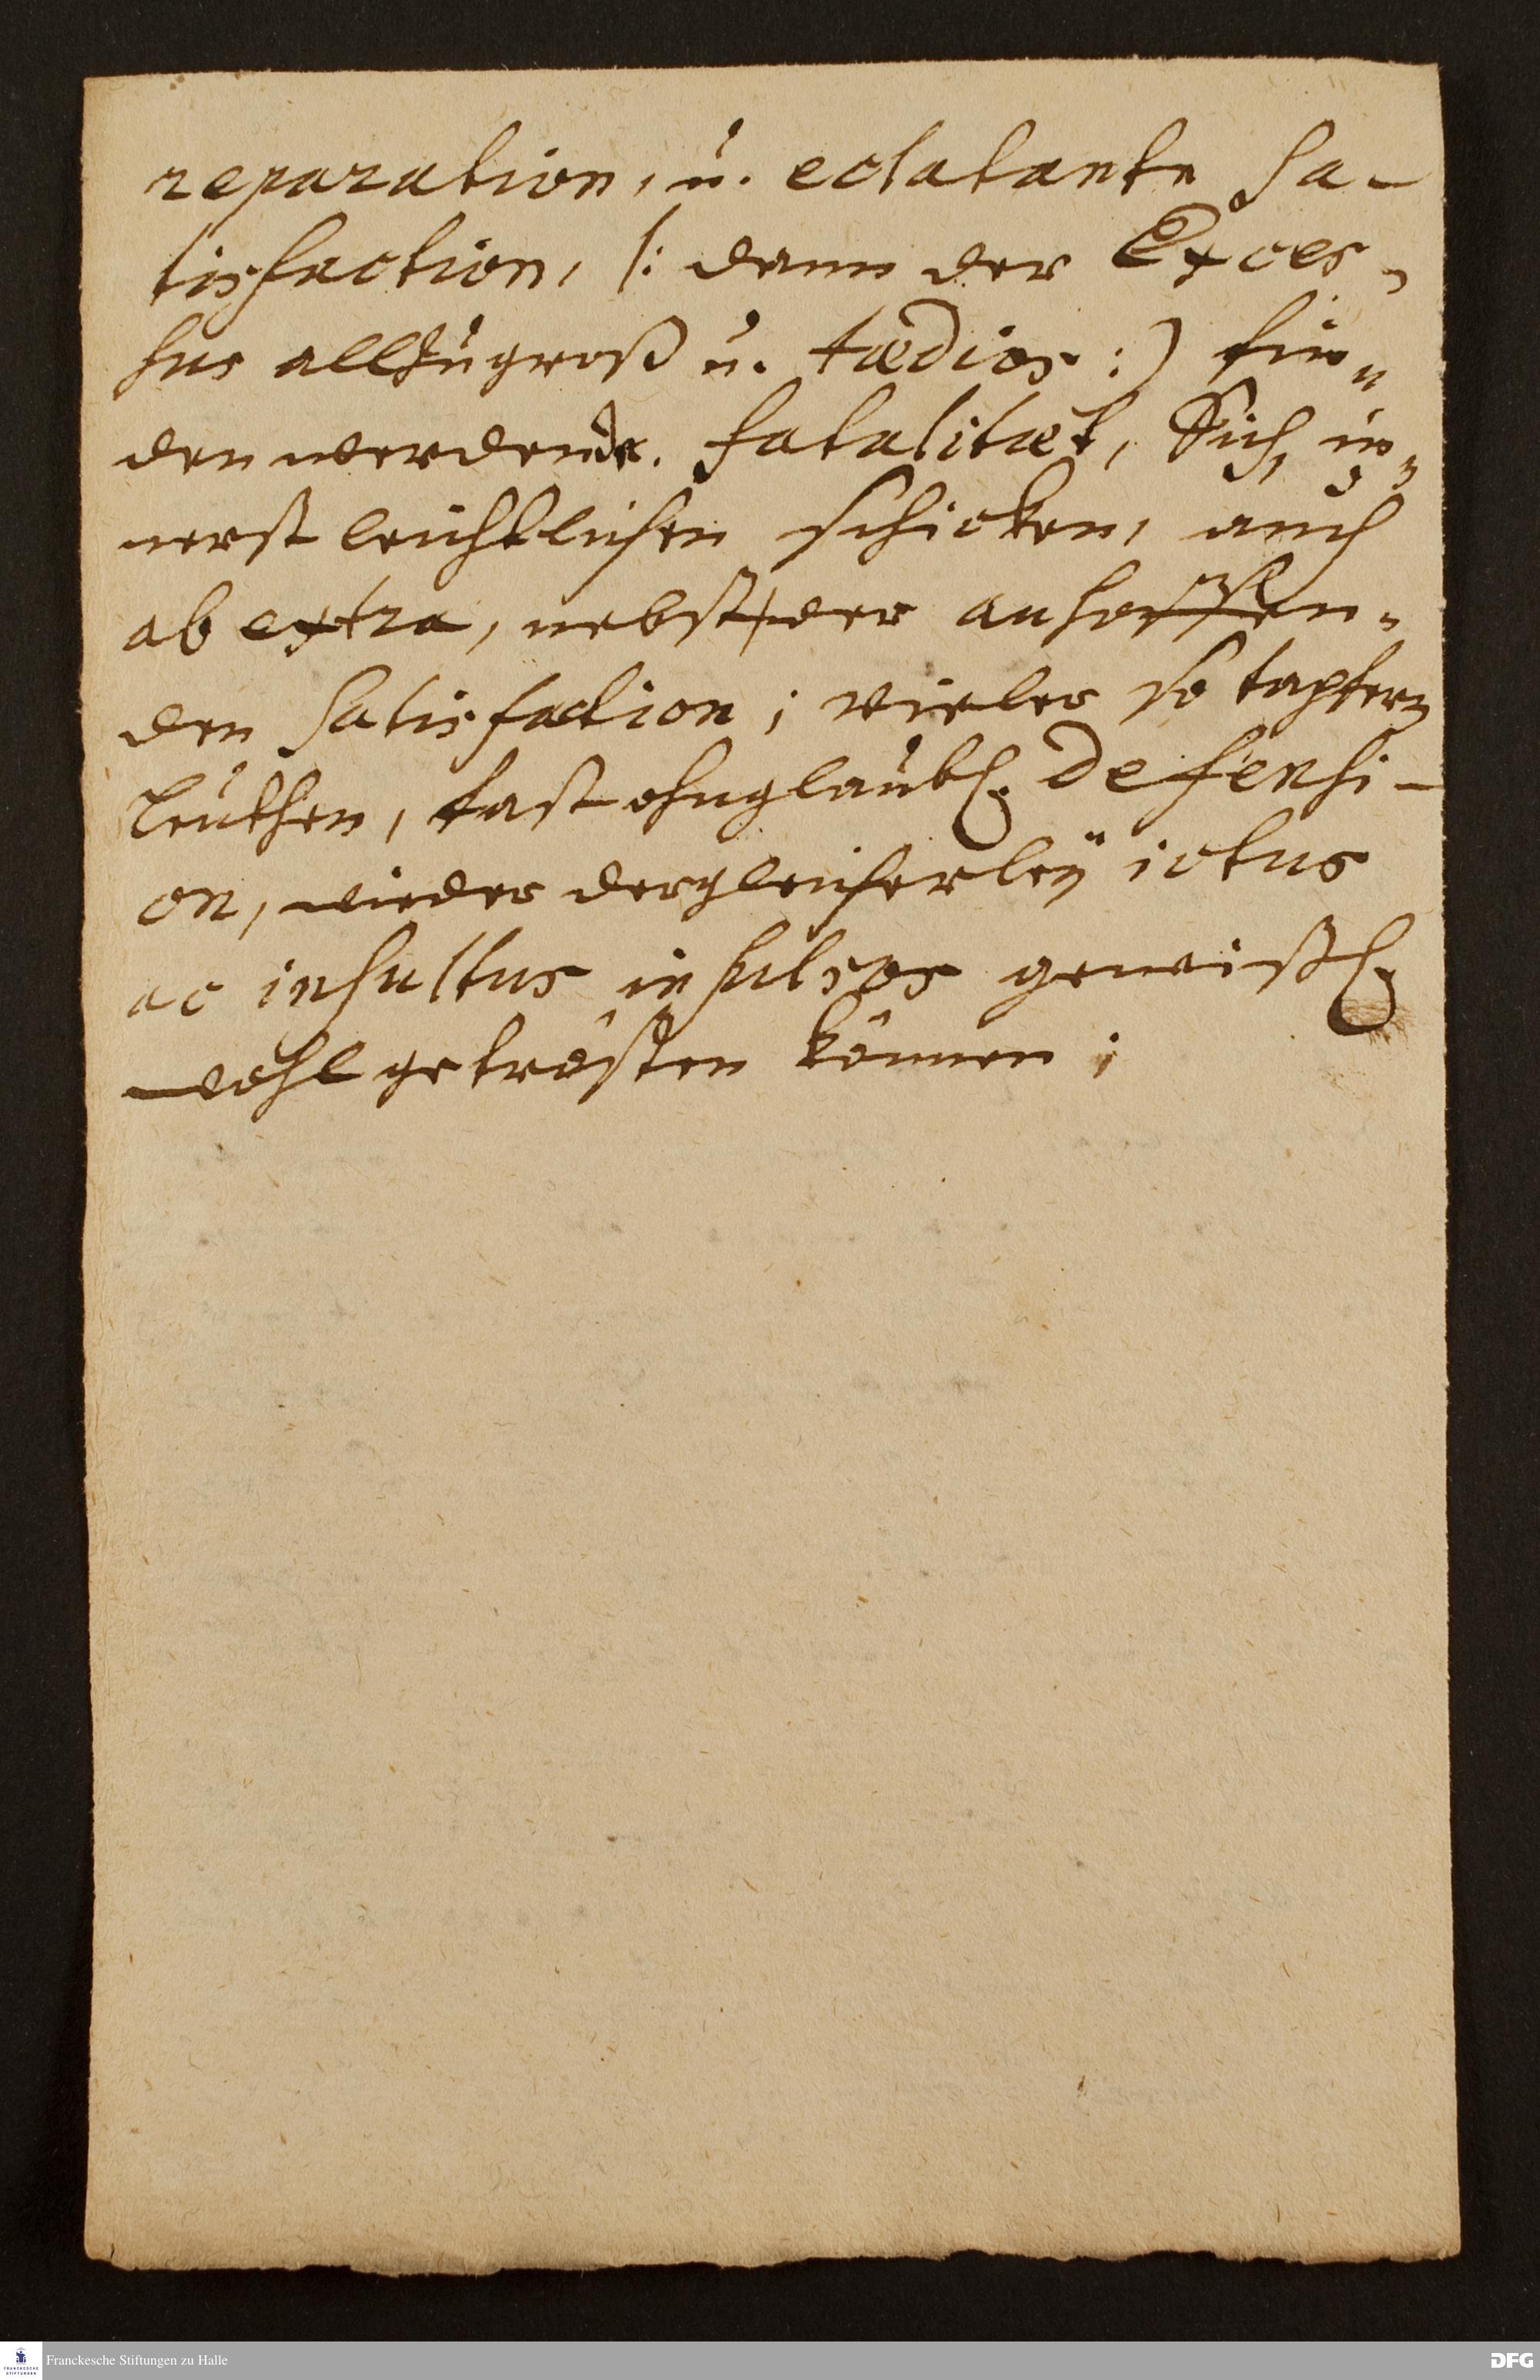 reparation, u. eclatante Sa-
tisfaction, /: dann der Exces-
sus allzugroß u. tædios :) fin-
den werdende. fatalitæt, Sich in-
nerst leichtlichen schicken, auch
ab extra, nebst der anhoffen-
den Satisfaction; vieler so tapfern
Leuthen, fast ohnglaubl. Defensi-
on, wieder dergleicherleÿ ictus
ac insultus insulsos gewißl.
wohl getrösten können;
Franckesche Stiftungen zu Halle
DFG